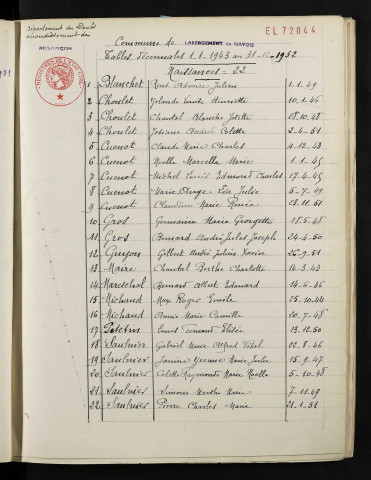 EL 72044
Département du Doubs
arrondissement de
BESANÇON
Commune de LABERGEMENT du NAVOIS
Tables décennales 1-1-1943 au 31-12-1952
Naissances - 22
1 Blanchet René Admire Julien 1-1-49
2 Choulet Yolande Henriette 10-1-46
3 Choulet Chantal Blanche Josette 18-10-48
4 Choulet Josiane Andrée Colette 2-4-51
5 Cuenot Claude Marie Charles 4-12-43
6 Cuenot Noelle Marcelle Marie 1-1-45
7 Cuenot Michel Louis Edmond Charles 17-4-45
8 Cuenot Marie Ange Léa Julie 5-7-49
9 Cuenot Claudine Marie Renée 23-11-51
10 Gros Germaine Marie Georgette 18-5-48
11 Gros Bernard André Jules Joseph 24-4-50
12 Guyon Gilbert André Julien Xavier 26-9-51
13 Maire Chantal Berthe Charlotte 14-3-43
14 Mareschal Bernard Albert Edouard 14-6-46
15 Michaud Max Roger Emile 25-10-44
16 Michaud Annie Marie Camille 20-7-48
17 Fernand Elisée 13-12-50
18 Saulnier Gabriel Alfred Vital 02-8-46
19 Saulnier Janine Yvonne Marie Julie 15-9-47
20 Saulnier Colette Raymonde Marie Noelle 5-10-48
21 Saulnier Simone Marthe Marie 7-11-49
22 Saulnier Pierre Charles Marie 21-1-51